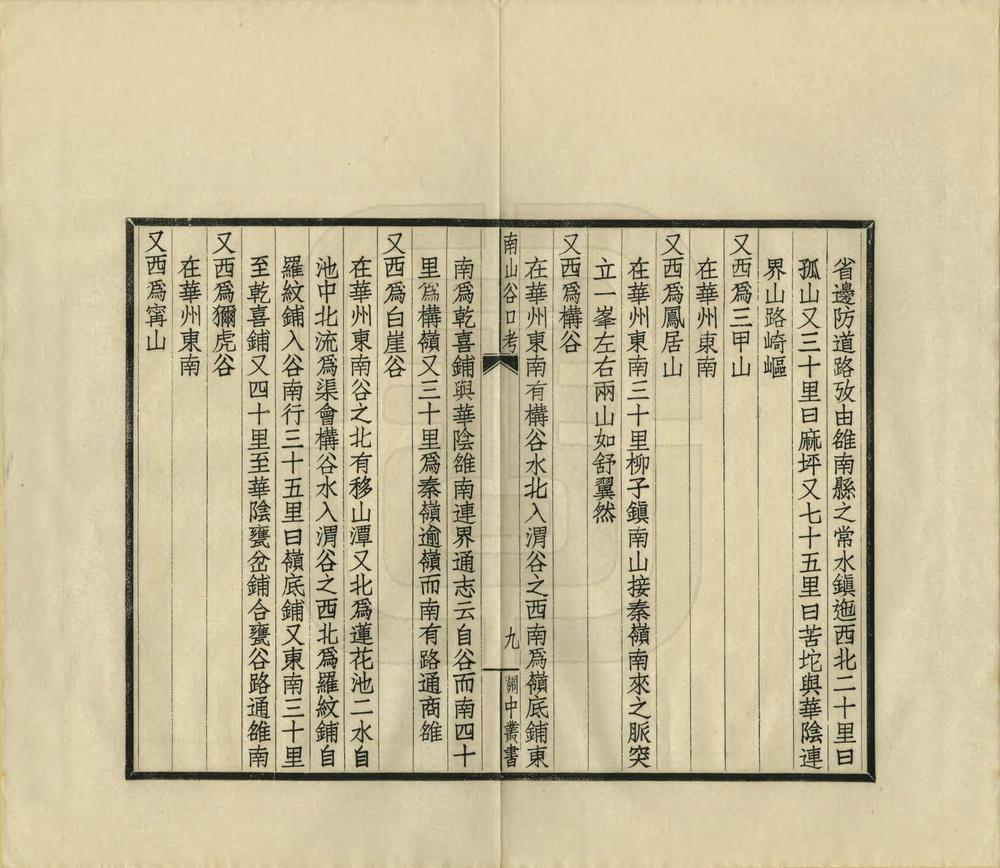 省邊防道路攷由雒南縣之常水鎭迤西北二十里曰
孤山又三十里曰麻坪又七十五里曰苦坨與華陰連
界山路崎嶇
又西爲三甲山
在華州東南
又西爲鳳居山
在華州東南三十里柳子鎭南山接秦嶺南來之脈突
立一峯左右兩山如舒翼然
又西爲構谷
在華州東南有構谷水北入渭谷之西南爲嶺底鋪東
南山谷口考
九
關中叢書
南爲乾喜鋪與華陰雒南連界通志云自谷而南四十
里爲構嶺又三十里爲秦嶺逾嶺而南有路通商雒
又西爲白崖谷
在華州東南谷之北有移山潭又北爲蓮花池二水自
池中北流爲渠會構谷水入渭谷之西北爲羅紋鋪自
羅紋鋪入谷南行三十五里曰嶺底鋪又東南三十里
至乾喜鋪又四十里至華陰甕岔鋪合甕谷路通雒南
又西爲獮虎谷
在華州東南
又西爲寗山